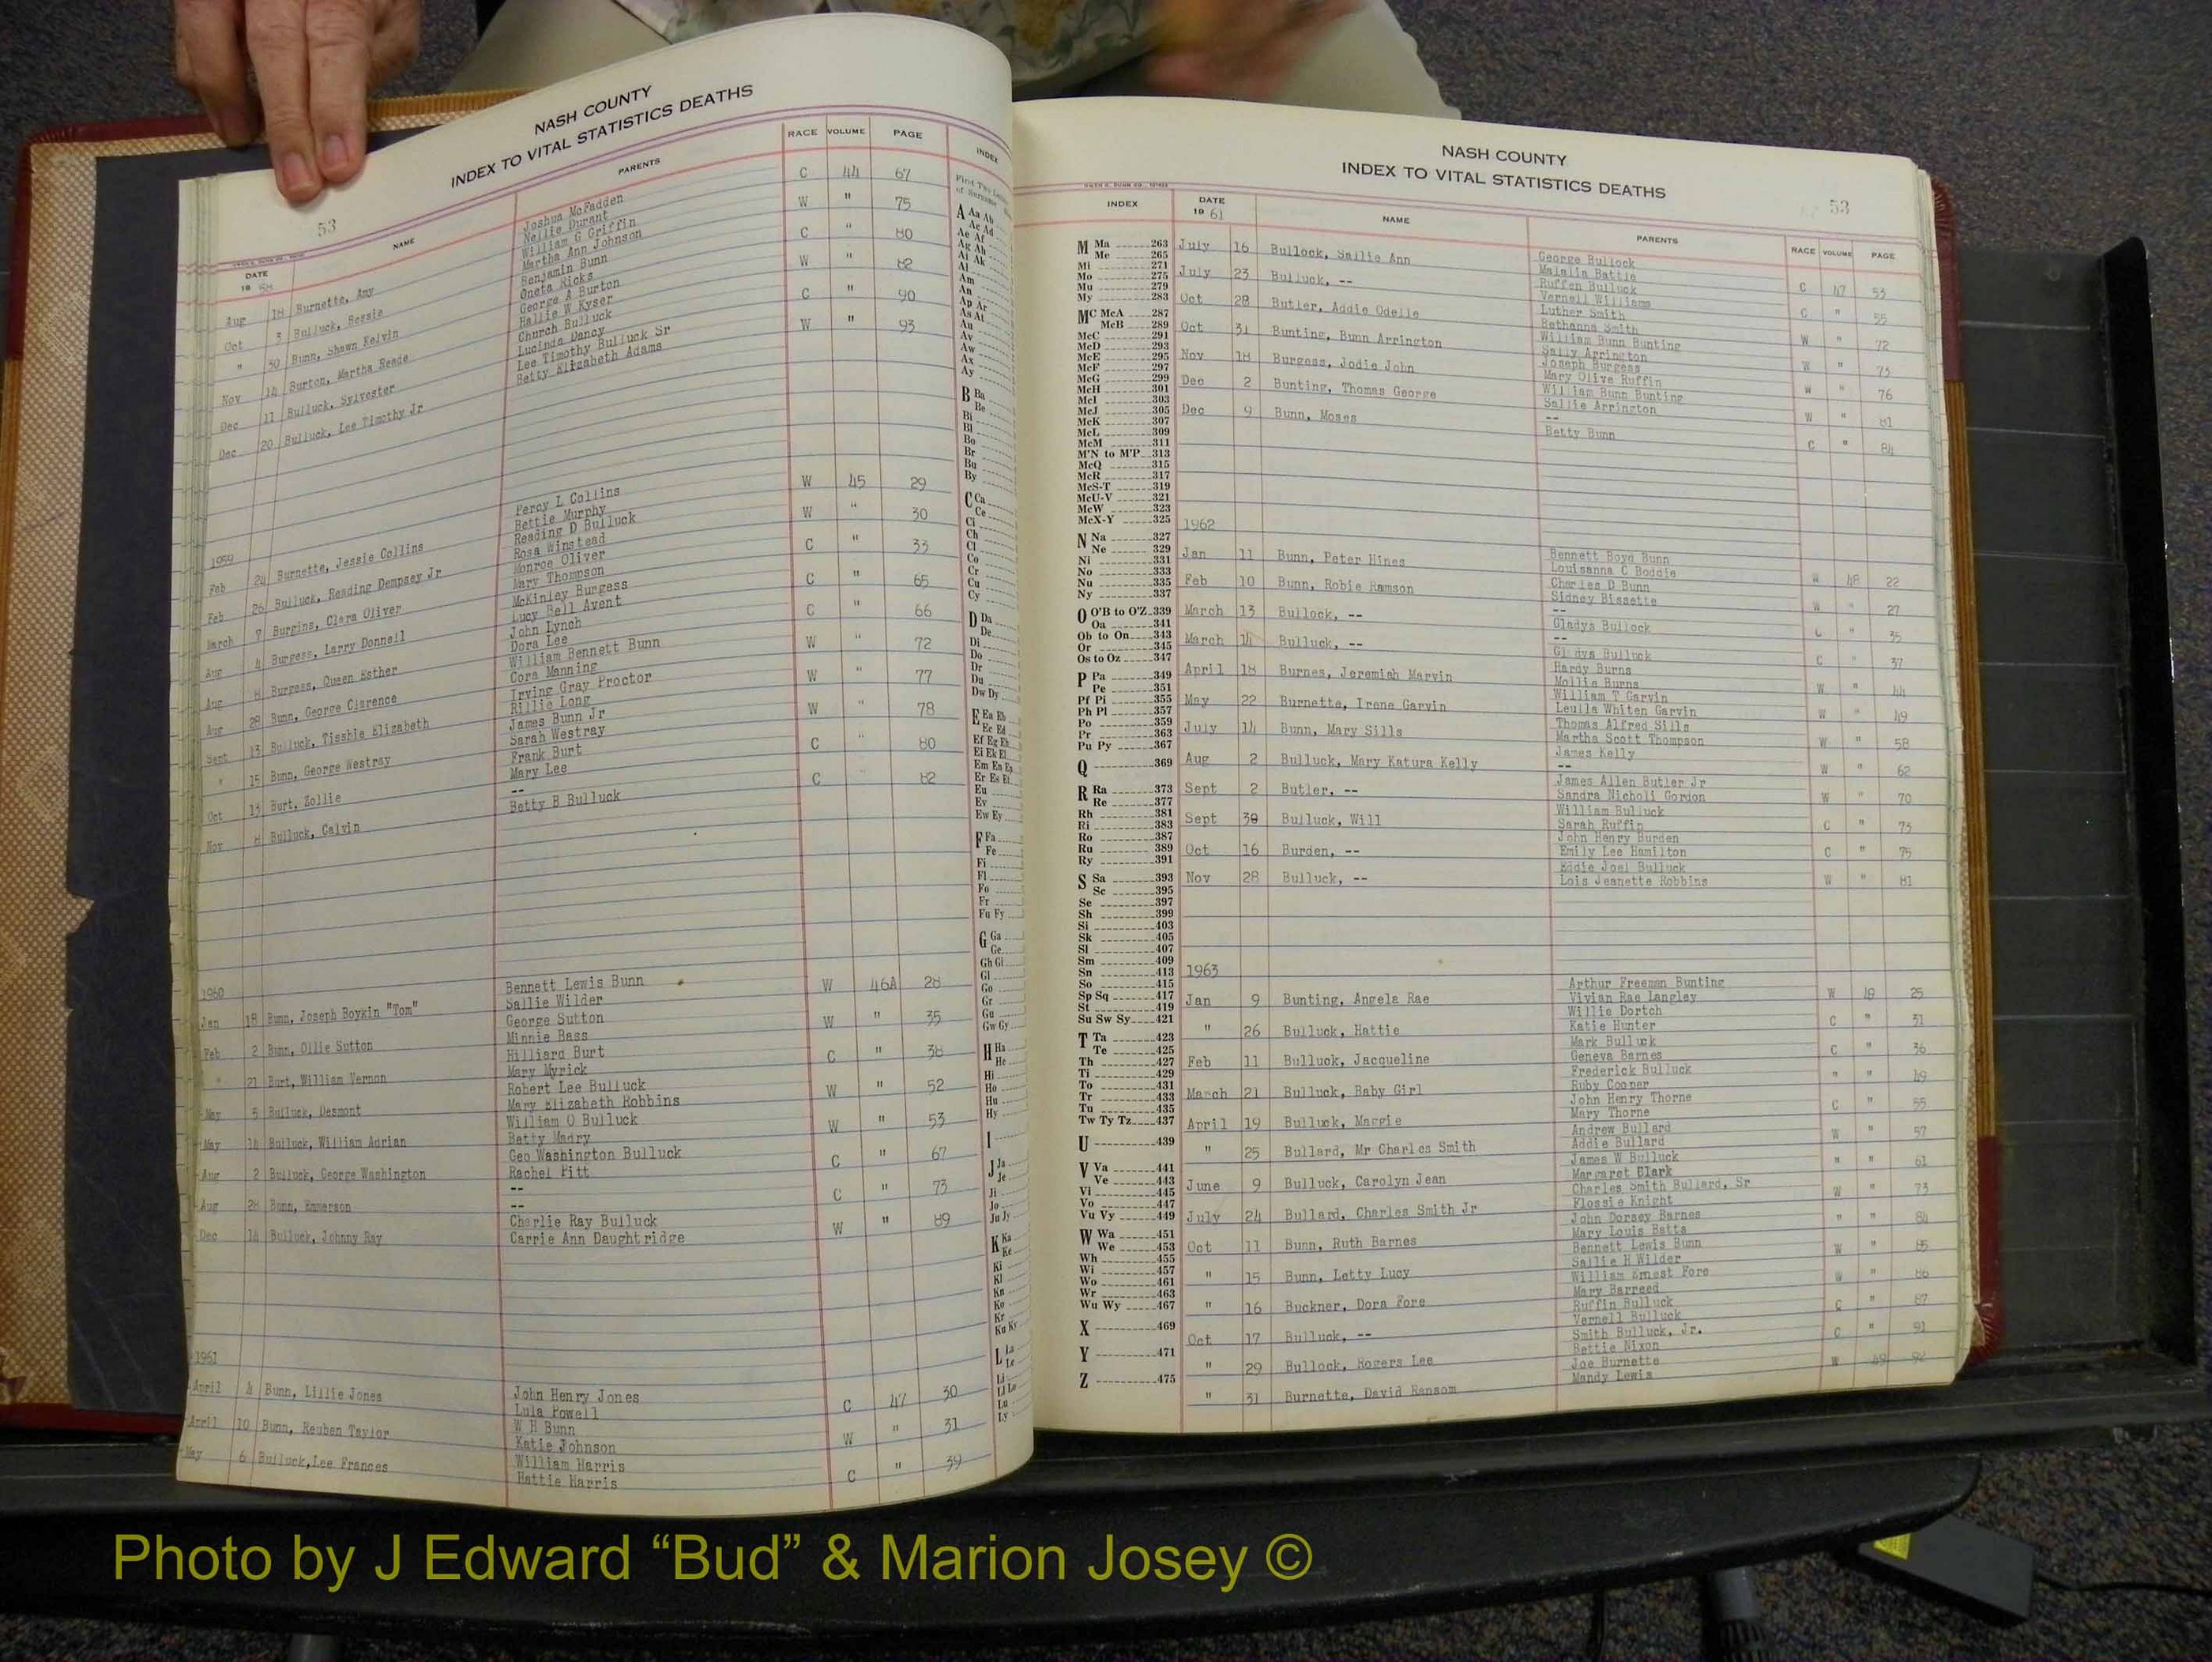 NASH COUNTY
INDEX TO VITAL STATISTICS DEATHS
53
DATE NAME PARENTS RACE VOLUME PAGE
19 58
Aug 18 Burnette, Amy Joshua McFadden C 44 67
Nellie Durant
Oct 3 Bulluck, Bessie William G Griffin W " 75
Martha Ann Johnson
" 30 Bunn, Shawn Kelvin Benjamin Bunn C " 80
Oneta Ricks
Nov 14 Burton, Martha Reade George A Burton W " 82
Hallie W Kyser
Dec 11 Bulluck, Sylvester Church Bulluck C " 90
Lucinda Dancy
Dec 20 Bulluck, Lee Timothy Jr Lee Timothy Bulluck Sr W " 93
Betty Elizabeth Adams
1959
Feb 24 Burnette, Jessie Collins Percy L Collins W 45 29
Bettie Murphy
Feb 26 Bulluck, Reading Dempsey Jr Reading D Bulluck W " 30
Rosa Winstead
March 7 Burgins, Clara Oliver Monroe Oliver C " 33
Mary Thompson
Aug 4 Burgess, Larry Donnell McKinley Burgess C " 65
Lucy Bell Avent
Aug 8 Burgess, Queen Esther John Lynch C " 66
Dora Lee
Aug 28 Bunn, George Clarence William Bennett Bunn W " 72
Cora Manning
Sept 13 Bulluck, Tisshie Elizabeth Irving Gray Proctor W " 77
Rillie Long
" 15 Bunn, George Westray James Bunn Jr W " 78
Sarah Westray
Oct 13 Burt, Zollie Frank Burt C " 80
Mary Lee
Nov 8 Bulluck, Calvin -- C 82
Betty B Bulluck
1960
Jan 18 Bunn, Joseph Boykin "Tom" Bennett Lewis Bunn W 46A 28
Sallie Wilder
Feb 2 Bunn, Ollie Sutton George Sutton W " 35
Minnie Bass
" 21 Burt, William Vernon Hilliard Burt C " 38
Mary Myrick
May 5 Bulluck, Desmont Robert Lee Bulluck W " 52
Mary Elizabeth Robbins
May 14 Bulluck, William Adrian William O Bulluck W " 53
Betty Madry
Aug 2 Bulluck, George Washington Geo Washington Bulluck C " 67
Rachel Pitt
Aug 28 Bunn, Emmerson -- C " 73
--
Dec 14 Bulluck, Johnny Ray Charlie Ray Bulluck W " 89
Carrie Ann Daughtridge
1961
April 4 Bunn, Lillie Jones John Henry Jones C 47 30
Lula Powell
April 10 Bunn, Reuben Taylor W H Bunn W " 31
Katie Johnson
May 6 Bulluck,Lee Frances William Harris C " 39
Hattie Harris
INDEX
First Two
of Surname
A Aa Ab
Ac Ad
Ae Af
Ag Ah
Ai Ak
Al
Am
An
Ap Ar
As At
Au
Av
Aw
Ax
Ay
B Ba
Be
Bi
Bl
Bo
Br
Bu
By
C Ca
Ce
Ci
Ch
Cl
Co
Cr
Cu
Cy
D Da
De
Di
Do
Dr
Du
Dw Dy
E Ea Eb
Ec Ed
Ef Eg Eh
Ei Ek El
Em En Ep
Er Es Et
Eu
Ev
Ew Ey
F Fa
Fe
Fi
Fl
Fo
Fr
Fu Fy
G Ga
Ge
Gh Gi
Gl
Go
Gr
Gu
Gw Gy
H Ha
He
Hi
Ho
Hu
Hy
I
J Ja
Je
Ji
Jo
Ju Jy
K Ka
Ke
Ki
Kl
Kn
Ko
Kr
Ku Ky
L La
Le
Li
Ll Lo
Lu
Ly
NASH COUNTY
INDEX TO VITAL STATISTICS DEATHS
53
INDEX DATE NAME PARENTS RACE VOLUME PAGE
19 61
M Ma 263
Me 265
Mi 271
Mo 275
Mu 279
My 283
MC McA 287
McB 289
McC 291
McD 293
McE 295
McF 297
McG 299
McH 301
McI 303
McJ 305
McK 307
McL 309
McM 311
M'N to M'P 313
McQ 315
McR 317
McS-T 319
McU-V 321
McW 323
McX-Y 325
N Na 327
Ne 329
Ni 331
No 333
Nu 335
Ny 337
O O'B to O'Z 339
Oa 341
Ob to On 343
Or 345
Os to Oz 347
P Pa 349
Pe 351
Pf Pi 355
Ph Pl 357
Po 359
Pr 363
Pu Py 367
Q 369
R Ra 373
Re 377
Rh 381
Ri 383
Ro 387
Ru 389
Ry 391
S Sa 393
Sc 395
Se 397
Sh 399
Si 403
Sk 405
Sl 407
Sm 409
Sn 413
So 415
Sp Sq 417
St 419
Su Sw Sy 421
T Ta 423
Te 425
Th 427
Ti 429
To 431
Tr 433
Tu 435
Tw Ty Tz 437
U 439
V Va 441
Ve 443
Vi 445
Vo 447
Vu Vy 449
W Wa 451
We 453
Wh 455
Wi 457
Wo 461
Wr 463
Wu Wy 467
X 469
Y 471
Z 475
July 16 Bullock, Sallie Ann George Bullock C 47 53
Malalia Battle
July 23 Bulluck, -- Ruffen Bulluck C " 55
Vernell Williams
Oct 28 Butler, Addie Odelle Luther Smith W " 72
Bethanna Smith
Oct 31 Bunting, Bunn Arrington William Bunn Bunting W " 73
Sally Arrington
Nov 18 Burgess, Jodie John Joseph Burgess W " 76
Mary Olive Ruffin
Dec 2 Bunting, Thomas George William Bunn Bunting W " 81
Sallie Arrington
Dec 9 Bunn, Moses -- C " 84
Betty Bunn
1962
Jan 11 Bunn, Peter Hines Bennett Boyd Bunn W 48 22
Louisanna C Boddie
Feb 10 Bunn, Robie Ramson Charles D Bunn W " 27
Sidney Bissette
March 13 Bullock, -- -- C " 35
Gladys Bullock
March 14 Bulluck, -- -- C " 37
Gladys Bulluck
April 18 Burnes, Jeremiah Marvin Hardy Burns W " 44
Mollie Burns
May 22 Burnette, Irene Garvin William T Garvin W " 49
Leulla Whiten Garvin
July 14 Bunn, Mary Sills Thomas Alfred Sills W " 58
Martha Scott Thompson
Aug 2 Bulluck, Mary Katura Kelly James Kelly W " 62
--
Sept 2 Butler, -- James Allen Butler Jr W " 70
Sandra Nicholi Gordon
Sept 30 Bulluck, Will William Bulluck C " 73
Sarah Ruffin
Oct 16 Burden, -- John Henry Burden C " 75
Emily Lee Hamilton
Nov 28 Bulluck, -- Eddie Joel Bulluck W " 81
Lois Jeanette Robbins
1963
Jan 9 Bunting, Angela Rae Arthur Freeman Bunting W 25
Vivian Rae Langley
" 26 Bulluck, Hattie Willie Dortch C " 31
Katie Hunter
Feb 11 Bulluck, Jacqueline Mark Bulluck C " 36
Geneva Barnes
March 21 Bulluck, Baby Girl Frederick Bulluck " " 49
Ruby Cooper
April 19 Bulluck, Maggie John Henry Thorne C " 55
Mary Thorne
" 25 Bullard, Mr Charles Smith Andrew Bullard W " 57
Addie Bullard
June 9 Bulluck, Carolyn Jean James W Bulluck " " 61
Margaret Clark
July 24 Bullard, Charles Smith Jr Charles Smith Bullard, Sr W " 73
Flossie Knight
Oct 11 Bunn, Ruth Barnes John Dorsey Barnes " " 84
Mary Louis Batts
" 15 Bunn, Letty Lucy Bennett Lewis Bunn W " 85
Sallie H Wilder
" 16 Buckner, Dora Fore William Ernest Fore W " 86
Mary Barreed
Oct 17 Bulluck, -- Ruffin Bulluck C " 87
Vernell Bulluck
" 29 Bullock, Rogers Lee Smith Bulluck, Jr. C " 91
Bettie Nixon
" 31 Burnette, David Ransom Joe Burnette W 49 92
Mandy Lewis
Photo by J Edward “Bud” & Marion Josey ©